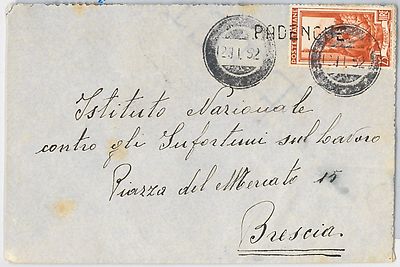 PADENGHE
POSTE ITALIANE
Istituto Nazionale
contro gli Infortuni sul Lavoro
Piazza del Mercato 15
Brescia